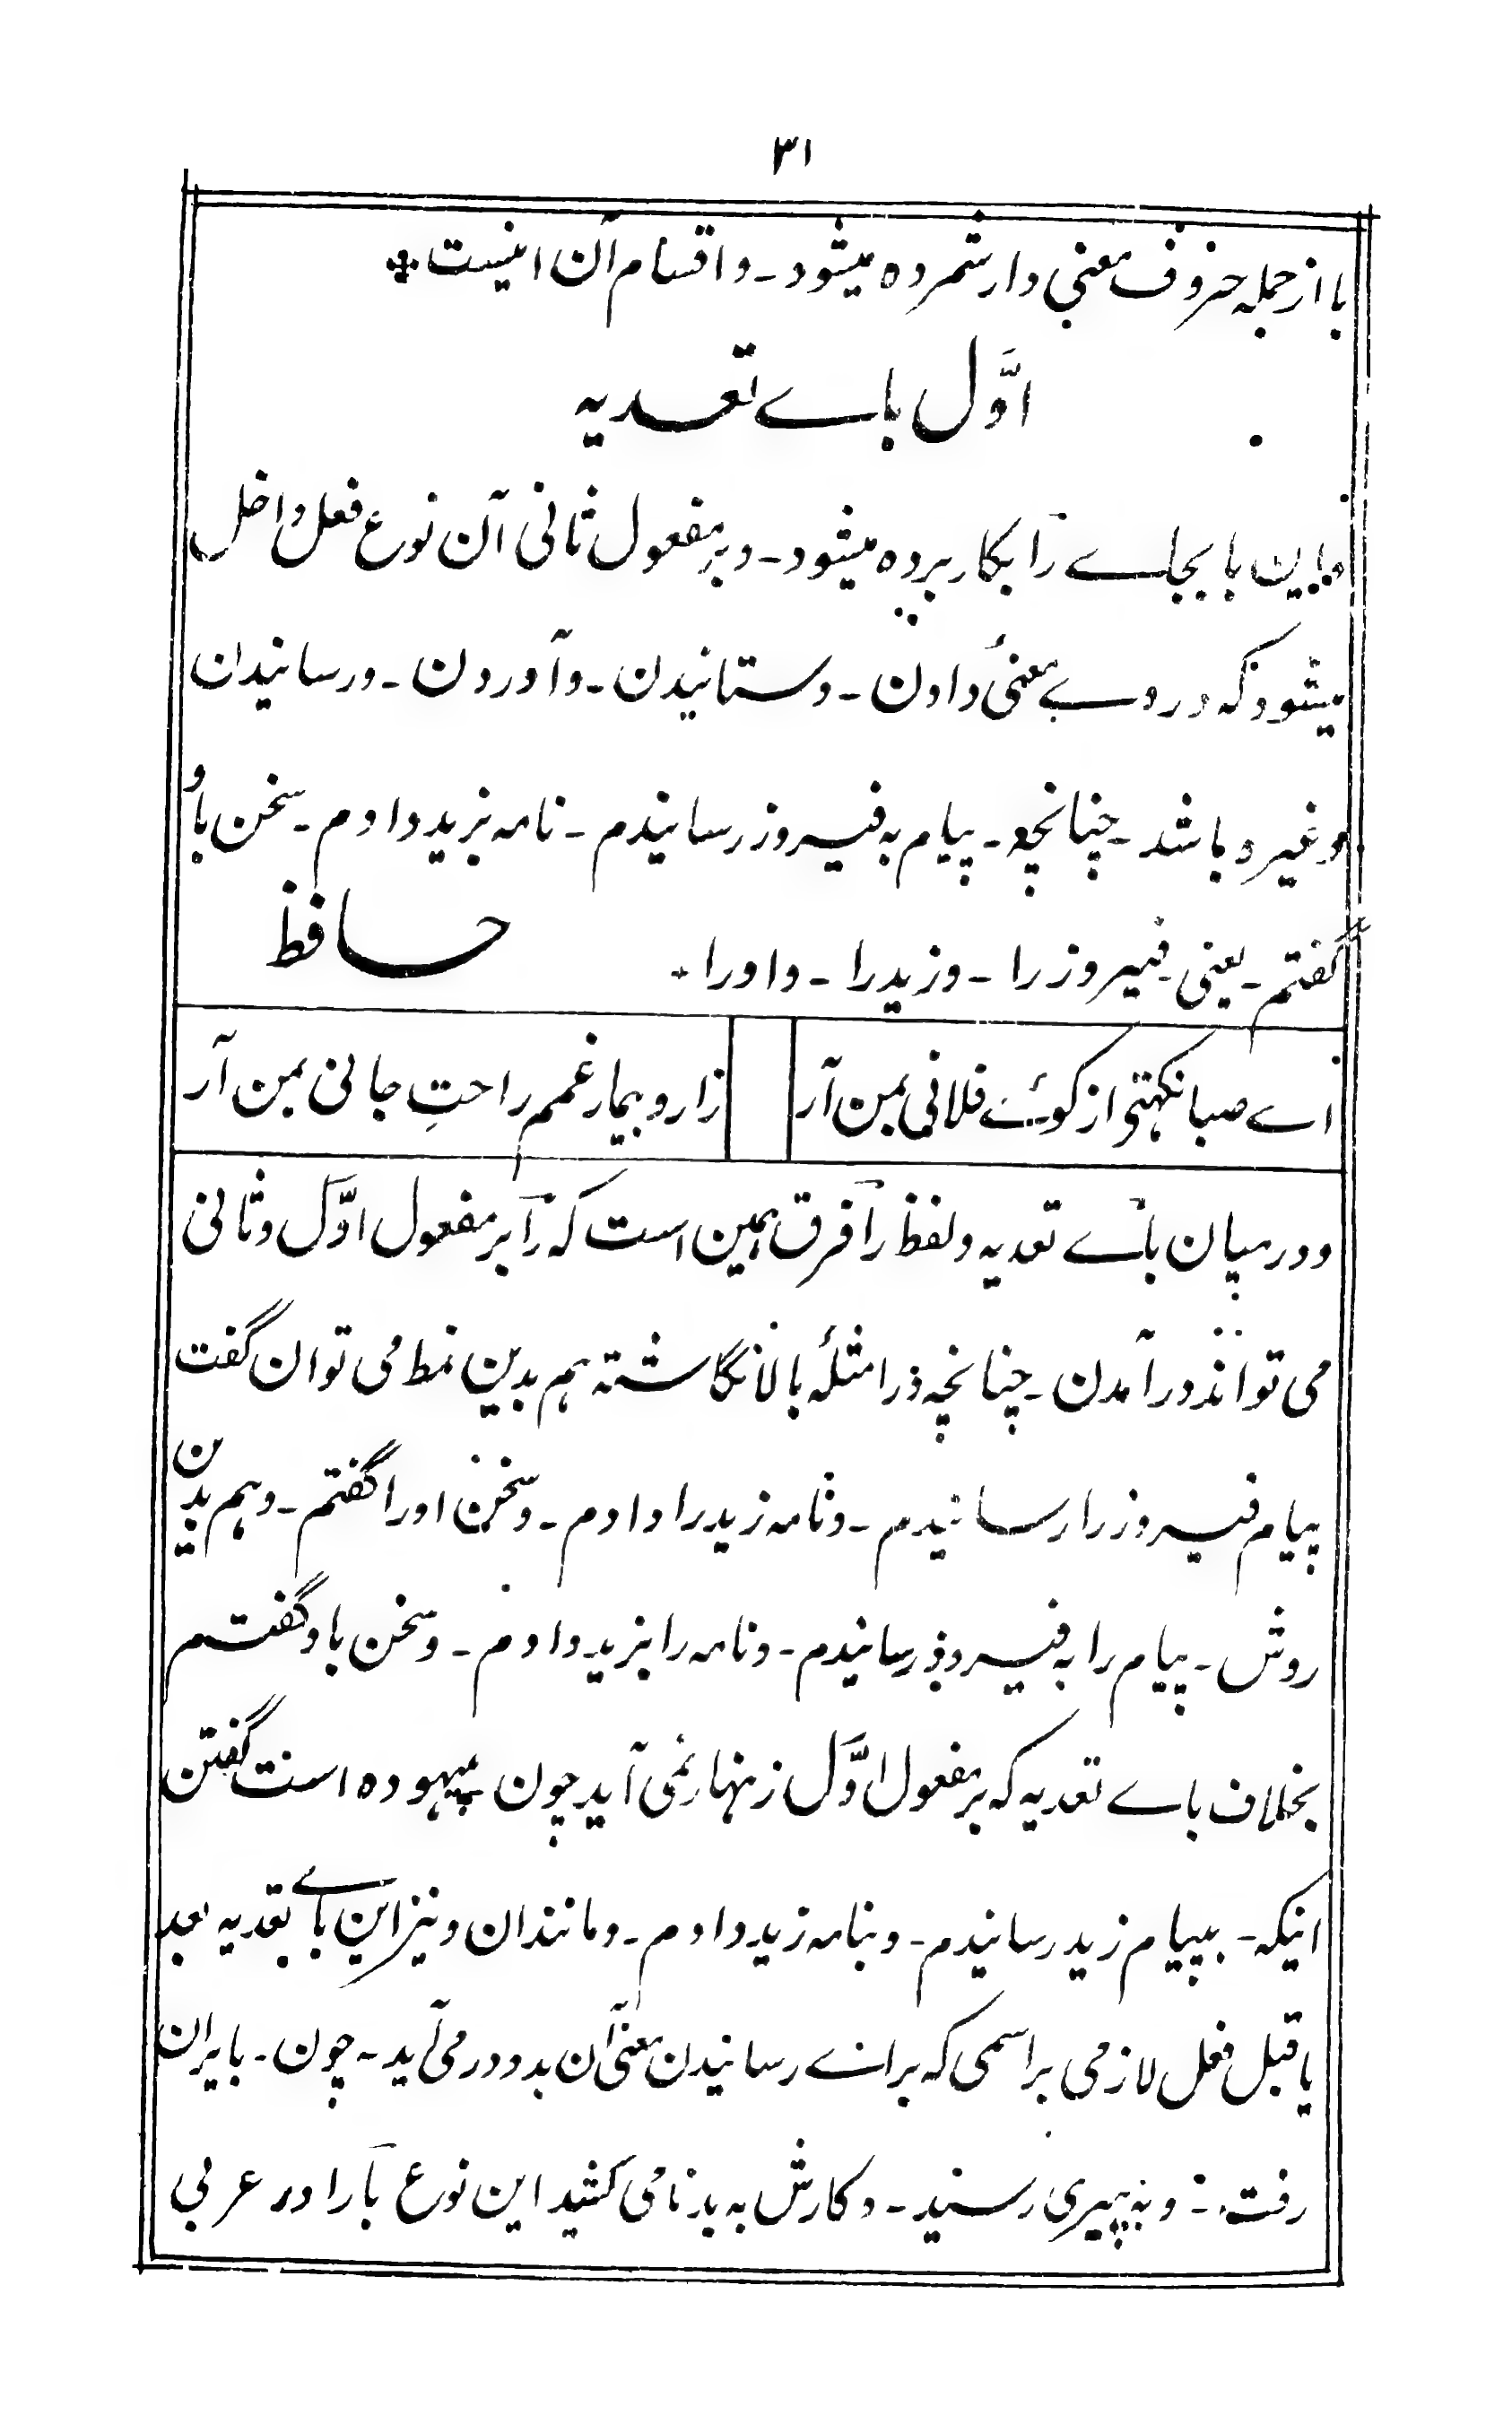 ۳۱
با از جمله حروف معنی دار شمرده میشود ـ و اقسام آن اینست
اوّل باے تعدیه
و این با بجاے را بکار برده میشود ـ و بر مفعول ثانی آن نوع فعل داخل
میشود که در وے معنیٔ دادن ـ و ستانیدن ـ و آوردن ـ و رسانیدن
و غیره باشد ـ چنانچه ـ پیام به فیروز رسانیدم ـ نامه بزید دادم ـ سخن باو
گفتم ـ یعنی فیروز را ـ و زید را ـ و او را ـ حافظ
اے صبا نکهتی از کوئے فلانی بمن آر
زار و بیمار غمم راحتِ جانی بمن آر
و درمیان باے تعدیه و لفظ را فرق همین است که را بر مفعول اوّل و ثانی
می تواند در آمدن ـ چنانچه در امثلهٔ بالا نگاشته هم بدین نمط می توان گفت
پیام فیروز را رسانیدم ـ و نامه زید را دادم ـ و سخن او را گفتم ـ و هم بدین
روش ـ پیام را به فیروز رسانیدم ـ و نامه را بزید دادم ـ و سخن باو گفتم
بخلاف باے تعدیه که بر مفعول اوّل زنهار نمی آید چون بیهوده است گفتن
اینکه ـ بپیام زید رسانیدم ـ و بنامه زید دادم ـ و مانند ان و نیز این باے تعدیه بعد
یا قبل فعل لازمی بر اسمی که براے رسانیدن معنیٔ آن بدو در می آید ـ چون ـ بایران
رفت ـ و به پیری رسید ـ و کارش به بدنامی کشید این نوع با را در عربی